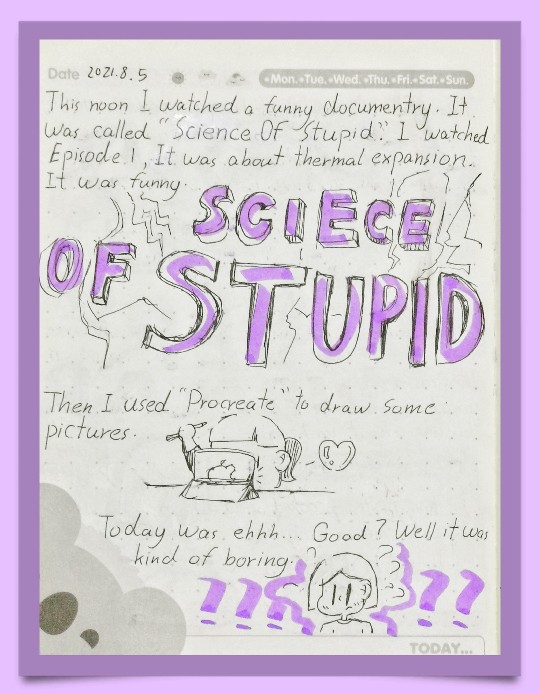 Date 2021.8.5
•Mon.•Tue.•Wed.•Thu.•Fri.•Sat.•Sun.
This noon I watched a funny documentry. It
was called "Science Of Stupid". I watched
Episode 1, It was about thermal expansion.
It was funny.
SCIECE
OF STUPID
Then I used "Procreate" to draw some
pictures.
Today was ehhh... Good? Well it was
kind of boring.
? ? ? ? ?
TODAY...